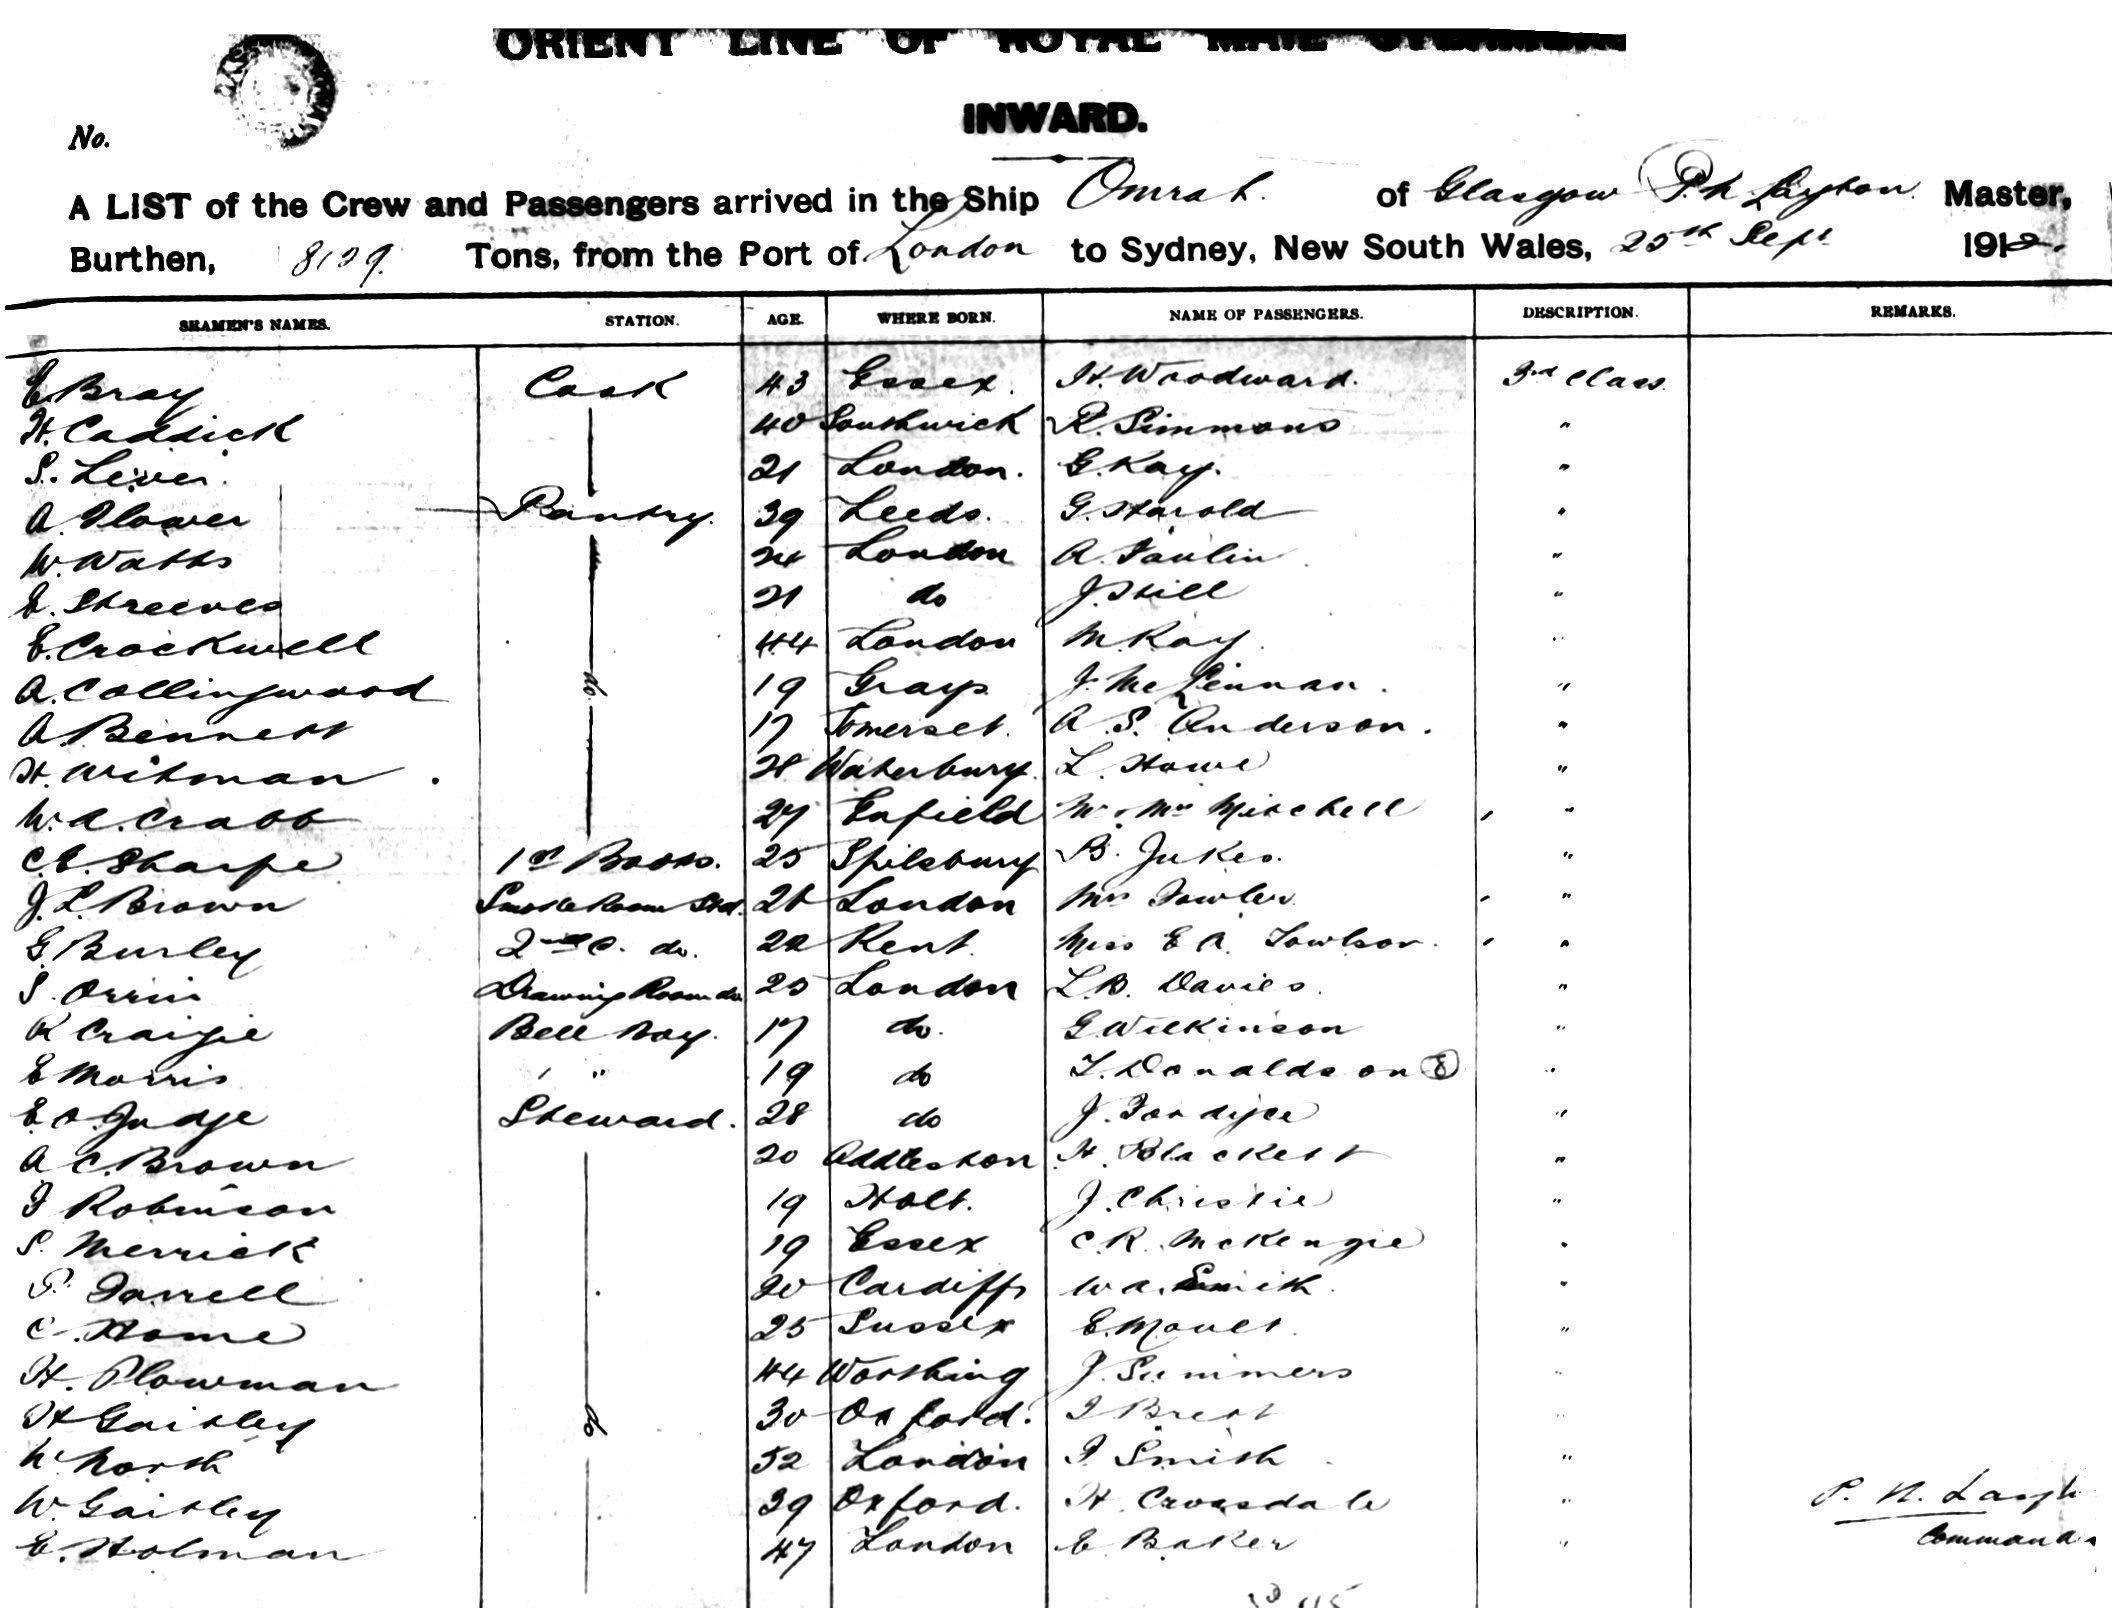 ORIENT LINE OF ROYAL MAIL STEAMERS
INWARD.
No.
A LIST of the Crew and Passengers arrived in the Ship Omrah. of Glasgow P. N. Layton Master,
Burthen, 8129. Tons, from the Port of London to Sydney, New South Wales, 25th Sept 1912.
SEAMEN'S NAMES. STATION. AGE. WHERE BORN. NAME OF PASSENGERS. DESCRIPTION. REMARKS.
E. Bray Cook 43 Essex. H. Woodward. 3rd Class.
H. Caddick 40 Southwick R. Simmons "
S. Lever. 21 London. G. Kay. "
A. Flower Pantry. 39 Leeds. G. Harold "
W. Watts 24 London A. Paulin "
E. Shreeves 21 do J. Hill "
E. Crockwell 44 London M. Kay "
A. Collingwood do. 19 Grays J. McLennan. "
A. Bennett 17 Somerset. A. S. Anderson. "
H. Witman 28 Waterbury. L. Howe "
W. A. Crabb 27 Enfield Mr. Mrs Mitchell "
C. E. Sharpe 1st Boots. 25 Spilsbury B. Jukes. "
J. L. Brown Smoke Room Std. 26 London Mrs Fowler "
G. Burley 2nd C. do. 22 Kent Miss E. A. Towlson. "
S. Orrin Drawing Room do. 25 London L. B. Davies. "
R Craigie Bell Boy. 17 do. G. Wilkinson "
E Morris " 19 do T. Donaldson E "
E. A. Judge Steward. 28 do J. Fordyce "
A C. Brown 20 Addleston H. Blackett "
F Robinson 19 Holt. J. Christie "
S. Merrick 19 Essex C. R. McKenzie "
P. Farrell 20 Cardiff W. A. Smith. "
C. Home 25 Sussex E. Moult. "
H. Plowman 44 Worthing J. Summers "
H Gaitley do 30 Oxford. F Brett "
W. North 52 London F Smith "
W. Gaitley 39 Oxford. H. Croasdale " P. N. Layt
E. Holman 47 London E Baker " Command